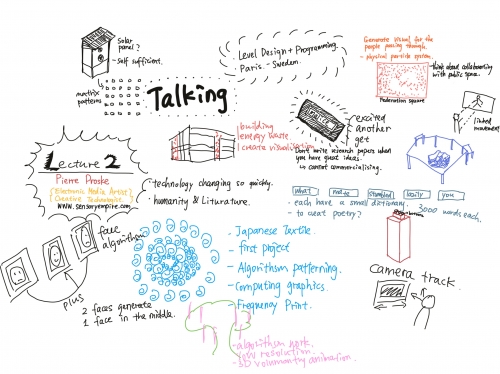 solar
panel?
- Self sufficient.
matrix
patterns
Talking
. Level Design + Programming.
. Paris - Sweden.
Generate visual for the
people passing through.
- physical particle system.
Federation Square
Think about collaborating
with public space.
linked
movement
excited
another
get
Don't write research papers when
you have great ideas.
commercialising.
building
energy waste.
create visualisation
Lecture 2
Pierre Proske
(Electronic Media Artist)
(Creative Technologist.
www.sensoryempire.com
. technology changing so quickly.
. humanity & Liturature.
what
mate
stumbled
easily
you
- each have a small dictionary. 3000 words each.
- to creat poetry?
face
algorithm
plus
2 faces generate
1 face in the middle.
- Japanese Textile.
- first project
- Algorithm patterning.
- Computing graphics.
- Frequency Print.
camera track.
- algorithm work.
- low resolution.
- 3D animation.